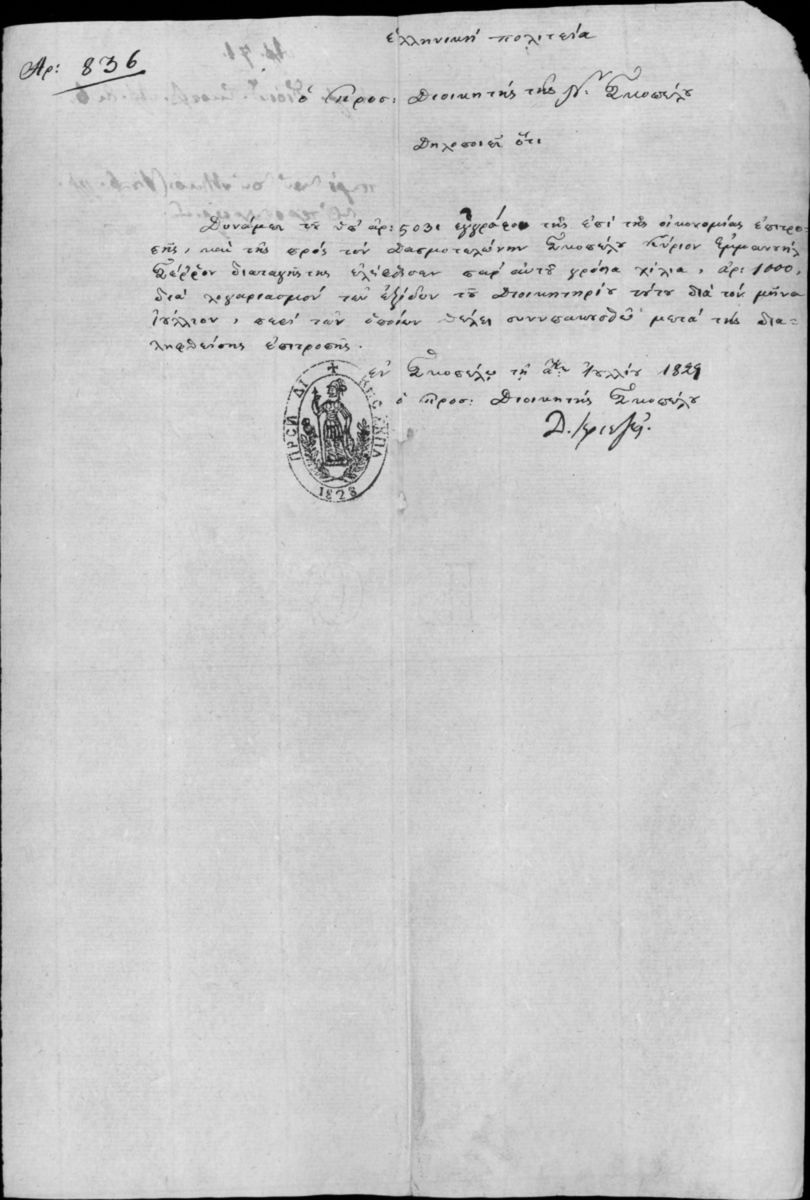 Ἑλληνική πολιτεία
Ἀρ: 836
Ὁ Προσ: Διοικητής τῆς Ν. Σκοπέλου
Δηλοποιεῖ ὅτι
Δυνάμει τοῦ ὑπ' ἀρ: 5031 ἐγγράφου τῆς ἐπί τῆς οἰκονομίας ἐπιτρο-
πῆς, καί τῆς πρός τον Δασμοτελώνην Σκοπέλου Κύριον Ἐμμανουήλ
διαταγῆς της ἐλείφθησαν παρ' αὐτοῦ γρόσια χίλια, ἀρ: 1000,
διά λογαριασμόν τῶν ἐξόδων τοῦ Διοικητηρίου τούτου διά τόν μῆνα
Ἰούλλιον, περί τῶν ὁποίων θέλει μετά τῆς δια-
ληφθείσης ἐπιτροπῆς.
ἐν Σκοπέλῳ τῇ Ἰουλλίου 1829
ὁ Προσ: Διοικητής Σκοπέλου
ΠΡΣΙ ΔΙ
1828